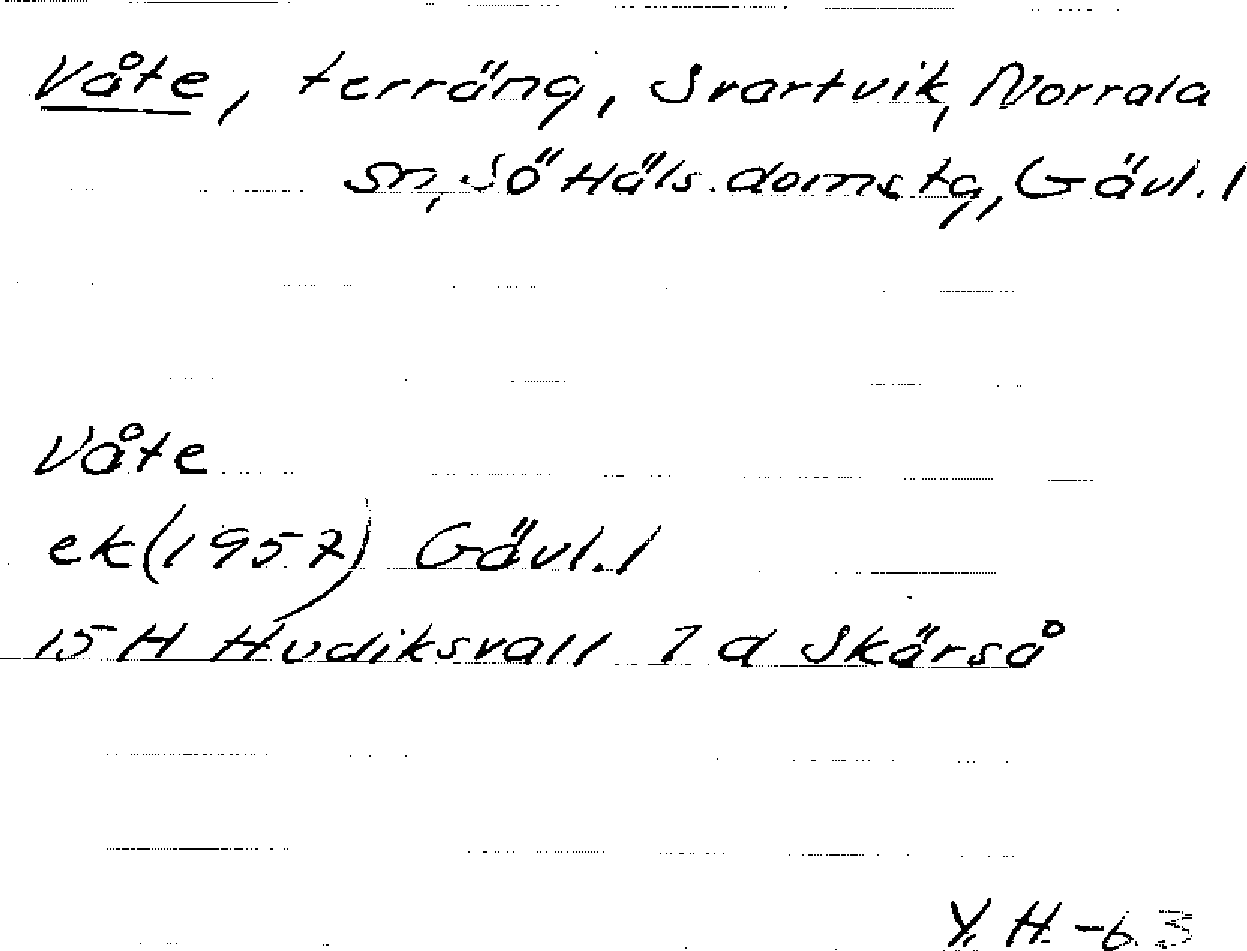 Våte, terräng, Svartvik, Norrala
sn, Sö Häls. domstg, Gävl. l
Våte
ek (1957) Gävl. l
15 H Hudiksvall 7 d Skärså
Y. H. -63